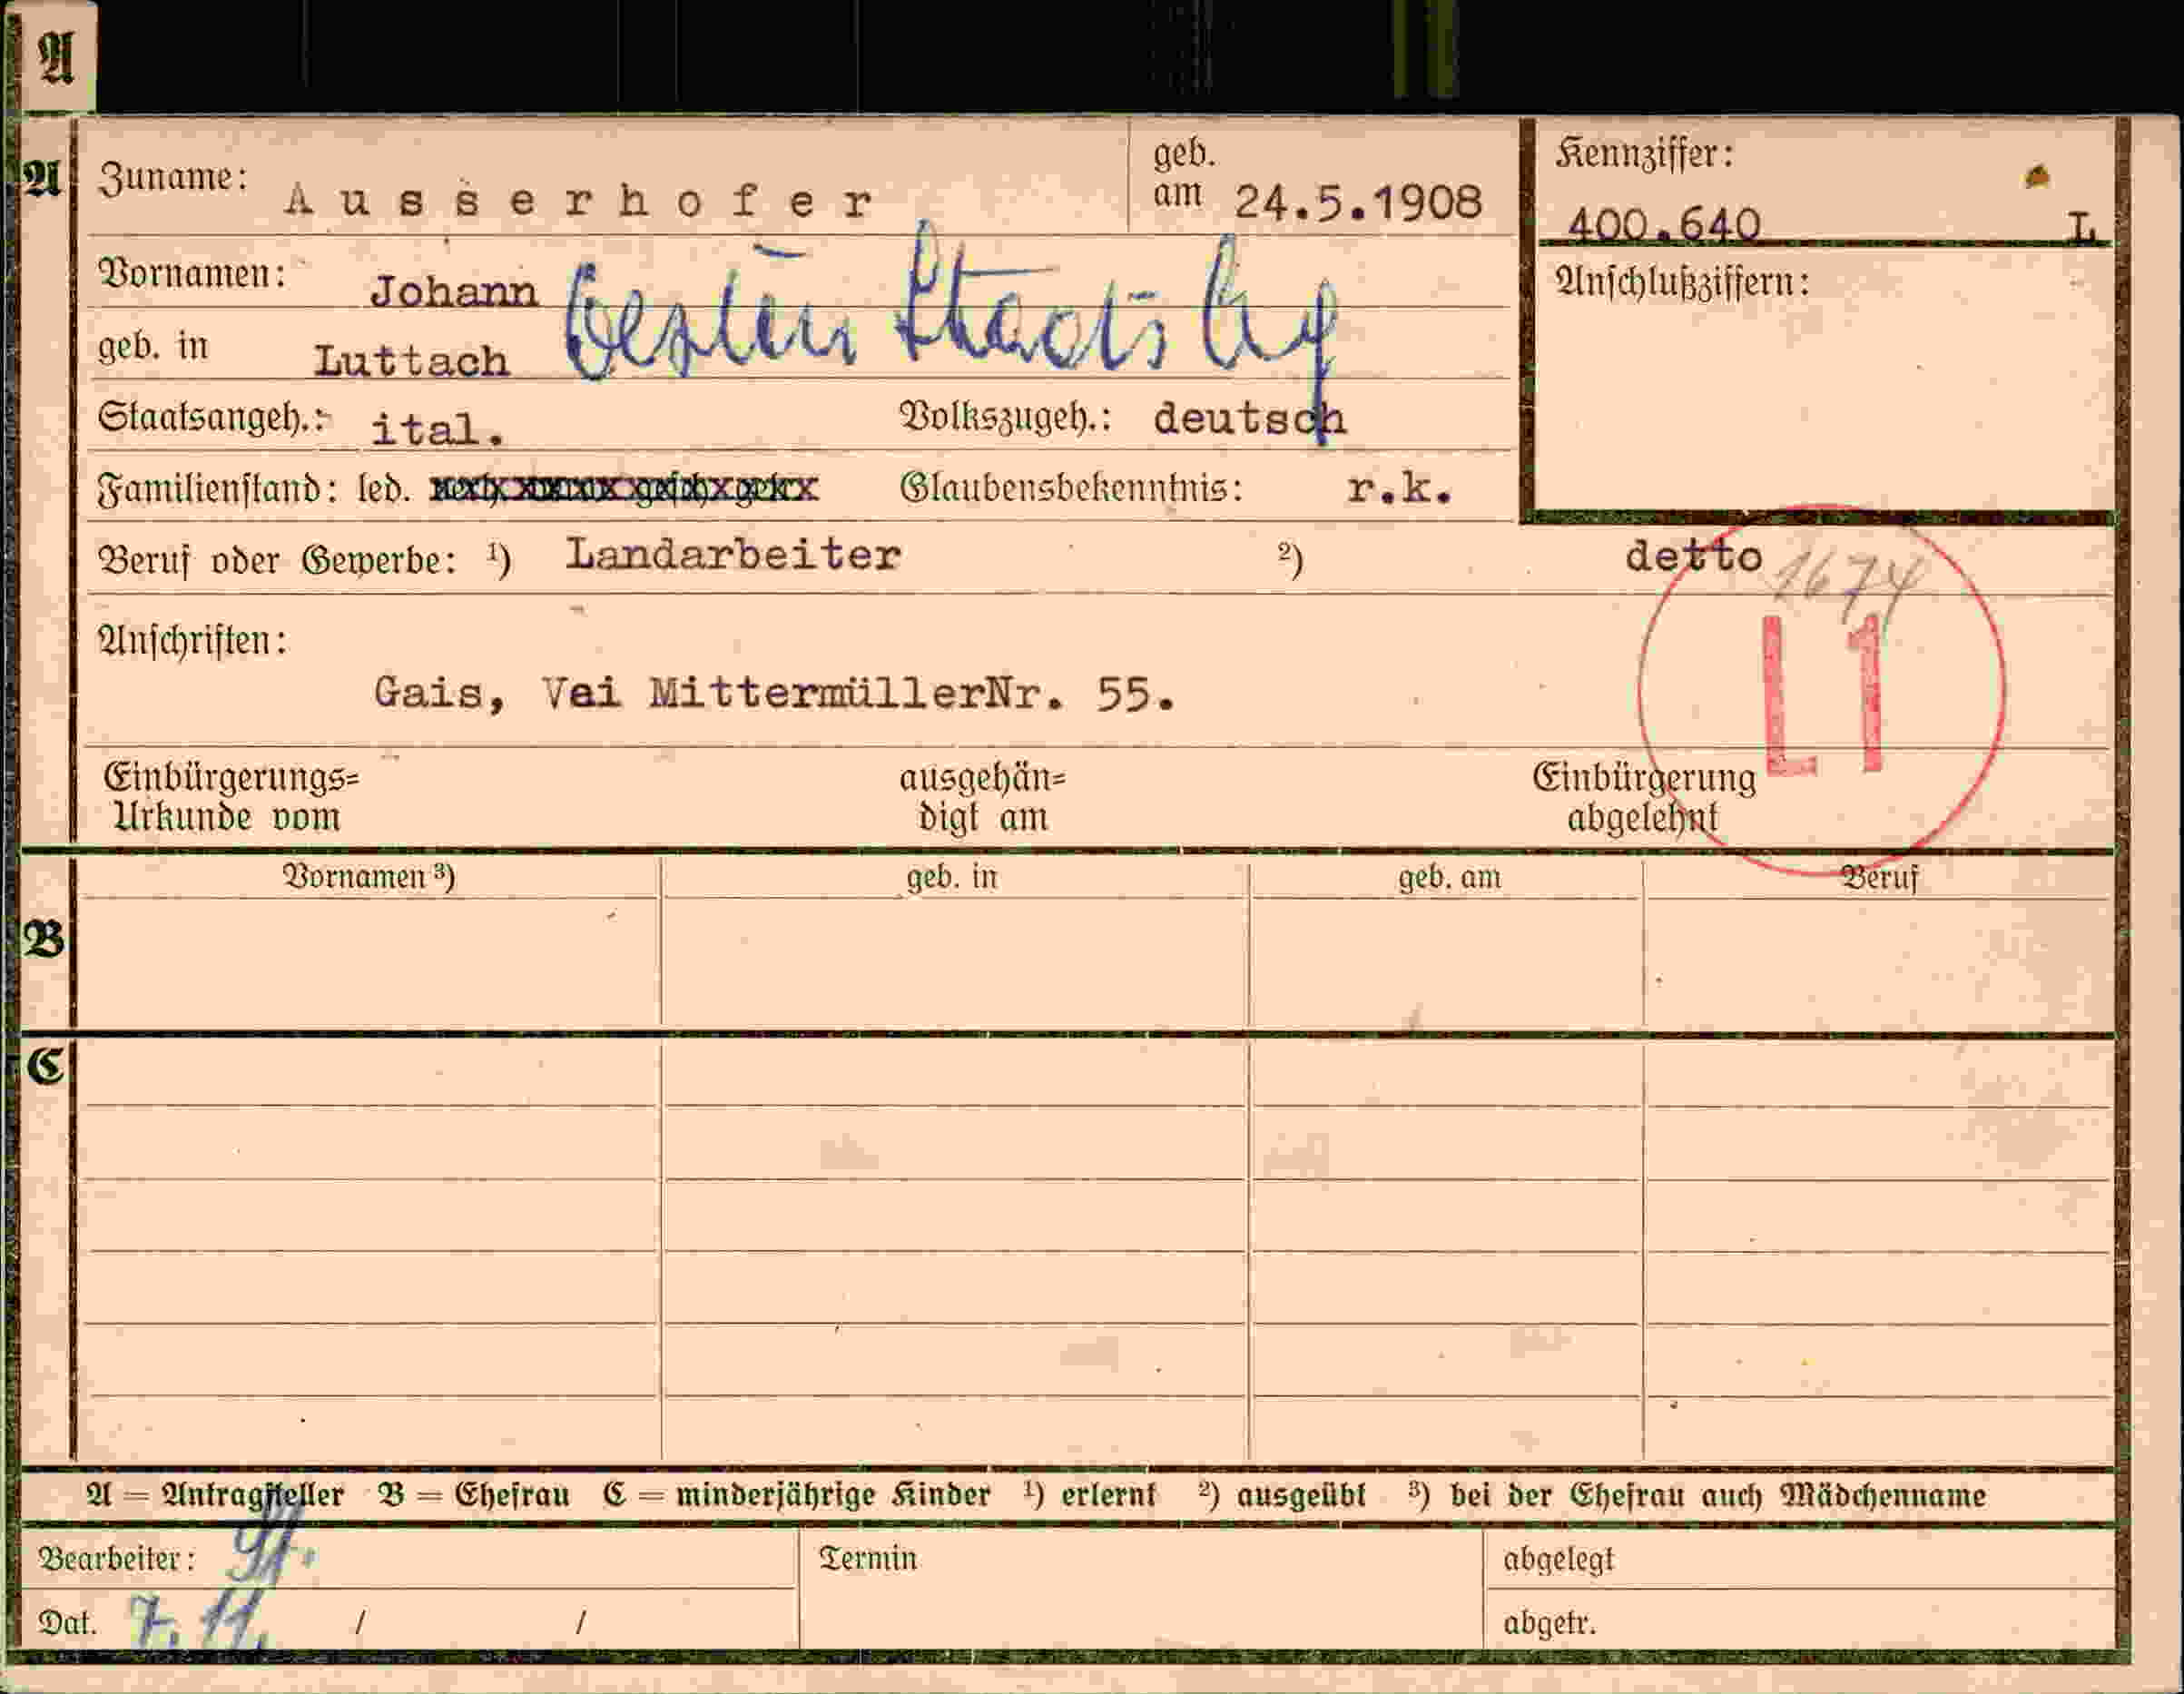 A
A
Zuname: Ausserhofer
geb. am 24.5.1908
Kennziffer:
400.640 L
Vornamen: Johann
Anschlußziffern:
geb. in Luttach
Staatsangeh.: ital. Volkszugeh.: deutsch
Familienstand: led. Glaubensbekenntnis: r.k.
Beruf oder Gewerbe: ¹) Landarbeiter ²) detto
1674
L1
Anschriften:
Gais, Vei MittermüllerNr. 55.
Einbürgerungs= ausgehän= Einbürgerung
Urkunde vom digt am abgelehnt
Vornamen ³) geb. in geb. am Beruf
B
C
A = Antragsteller B = Ehefrau C = minderjährige Kinder ¹) erlernt ²) ausgeübt ³) bei der Ehefrau auch Mädchenname
Bearbeiter: Termin abgelegt
Dat. 7. 11. / / abgetr.